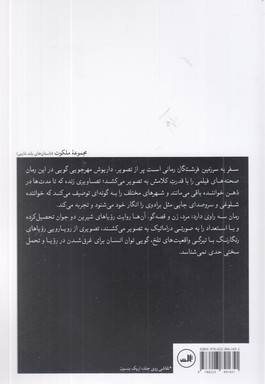 مجموعهٔ ملکوت (داستان‌های بلند فارسی)
سفر به سرزمین فرشتگان رمانی است پر از تصویر. داریوش مهرجویی گویی در این رمان
صحنه‌های فیلمی را با قدرت کلامش به تصویر می‌کشد؛ تصاویری زنده که تا مدت‌ها در
ذهن خواننده باقی می‌مانند و شهرهای مختلف را به گونه‌ای توصیف می‌کند که خواننده
شلوغی و سروصدای جایی مثل برادوی را انگار خود می‌شنود و تجربه می‌کند.
رمان سه راوی دارد: مرد، زن و قصه‌گو. آن‌ها روایت رؤیاهای شیرین دو جوان تحصیل‌کرده
و با استعداد را به صورتی دراماتیک به تصویر می‌کشند، تصویری از رویارویی رؤیاهای
رنگارنگ با تیرگی واقعیت‌های تلخ. گویی توان انسان برای غرق‌شدن در رؤیا و تحمل
سختی حدی نمی‌شناسد.
*نقاشی روی جلد: